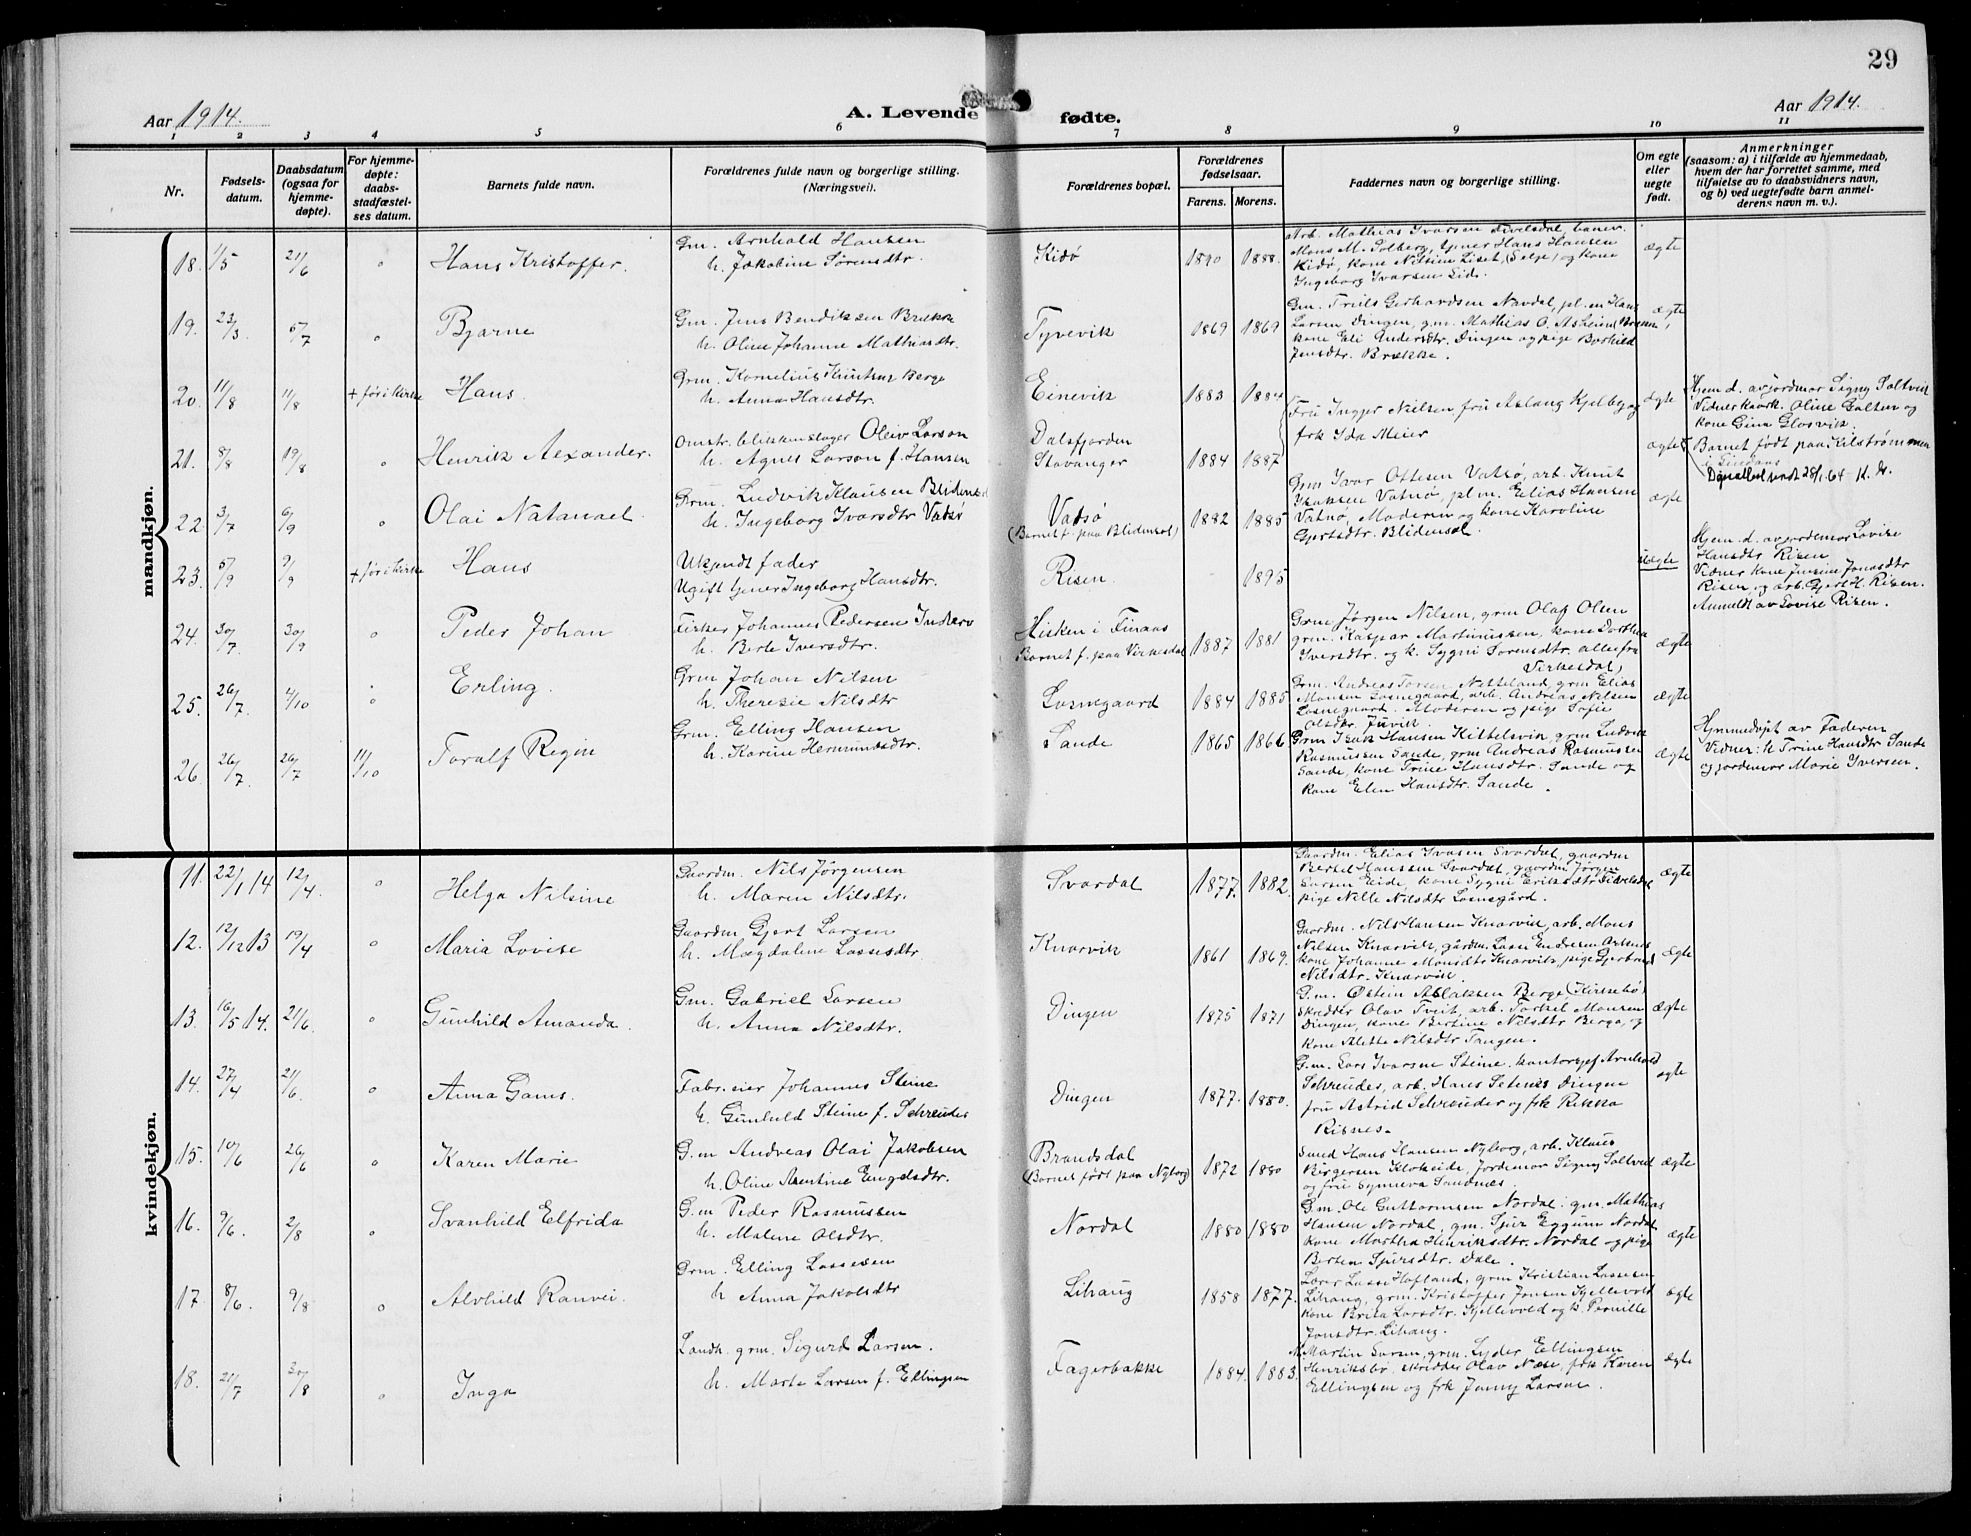 29
Aar 1914.
A. Levende fødte.
Aar 1914.
1 2 3 4 5 6 7 8 9 10 11
Nr.
Fødsels-
datum.
Daabsdatum
(ogsaa for
hjemme-
døpte).
For hjemme-
døpte:
daabs-
stadfæstel-
ses datum.
Barnets fulde navn.
Forældrenes fulde navn og borgerlige stilling.
(Næringsvei).
Forældrenes bopæl.
Forældrenes
fødselsaar.
Farens. Morens.
Faddernes navn og borgerlige stilling.
Om egte
eller
uegte
født.
Anmerkninger
(saasom: a) i tilfælde av hjemmedaab,
hvem der har forrettet samme, med
tilføielse av to daabsvidners navn,
og b) ved uegtefødte barn anmel-
derens navn m. v.).
mandkjøn.
18. 1/5 21/6 Hans Kristoffer.
Gm. Arnhold Hansen
h. Jakobine Sørensdtr.
Kidø 1890 1888.
Arb. Mathias Ivarsen
Mons M. Solberg, tjener Hans Hansen
Kidø, kone Nilsine Liset, (Selje) og kone
Ingeborg Ivarsen Eide.
ægte
19. 23/3 5/7 Bjarne
Gm. Jens Bendiksen Brække
h. Oline Johanne Mathiasdtr.
Tyrevik 1869 1869
Gm. Truls Gerhardsen Nordal, pl.en Hans
Larsen Dingen, gm. Mathias O. Asheim,
kone Eli Andersdtr. Dingen og pige Borhild
Jensdtr. Brække.
ægte
20. 11/8 11/8 + før i kirke Hans.
Grm. Kornelius Knutsen Berge
h. Anna Hansdtr.
Einevik 1883 1884
ægte
Hjem. d. av jordmor Signy Soltveit
Vidner: Oline Galten og
kone Gina Glosvik.
21. 8/8 19/8 Henrik Alexander.
Omstr. blikkenslager Oleiv Larson
h. Agnes Larson f. Hansen
Dalsfjorden
Stavanger 1884 1887
Fru Ingjer Nielsen, fru Aslaug Kjelby og
frk Ida Meier
ægte
Barnet født paa Kilstrømmen
22. 3/7 6/9 Olai Natanael.
Grm. Ludvik Klausen Blidensol
h. Ingeborg Ivarsdtr Vatsø
Vatsø
(Barnet f. paa Blidensol) 1882 1885
Grm Ivar Ottesen Vatsø, arb. Knut
Isaksen Vatnø, pl.m. Elias Hansen
Vatnø, Moderen og kone Karoline
Gjertsdtr. Blidensol.
ægte
23. 5/9 9/9 + før i kirke Hans
Ukjendt fader
Ugift tjener Ingeborg Hansdtr.
Risen. 1895
uægte
Hjem. d. av jordemor Lovise
Hansdtr Risen
Vidner kone Jensine Jonasdtr
Risen, og arb. Gjert H. Risen.
Anmeldt av Lovise Risen.
24. 30/7 30/9 Peder Johan
Fisker Johannes Pedersen Indrevo
h. Berte Iversdtr.
Hisken i Finaas
Barnet f. paa Virkesdal 1887 1881
Grm Jørgen Nilsen, grm Olaf Olsen
grm. Kaspar Martinussen, kone Dorthea
Iversdtr. og k. Sygni Sorensdtr. alle fra
Virkesdal,
ægte
25. 26/7 4/10 Erling.
Grm Johan Nilsen
h. Theresie Nilsdtr
Losnegaard 1884 1885
Grm. Andreas Torsen Netteland, grm Elias
Monsen Losnegaard, arb. Andreas Nilsen
Losnegaard. Moderen og pige Sofie
Olsdtr. Juvik.
ægte
26 26/7. 26/7 11/10 Toralf Regin
Grm. Elling Hansen
h. Karine Hermundsdtr.
Sande 1865 1866
Grm Isak Hansen Kittelsvik, grm Ludvik
Rasmussen Sande, grm Andreas Rasmussen
Sande, kone Trine Hansdtr. Sande og
kone Elen Hansdtr. Sande.
ægte
Hjemmedøpt av Faderen
Vidner: h Trine Hansdtr Sande
og jordemor Marie Iversen.
kvindekjøn.
11. 22/1 14 12/4. Helga Nilsine
Gaardm. Nils Jørgensen
h. Maren Nilsdtr.
Svardal 1877. 1882.
Gaardm. Elias Svardal, gaardm
Bertel Hanssen Svardal, gaardm Jørgen
Larsen Eide, kone Sygni Eriksdtr
pige Nille Nilsdtr Losnegård.
ægte
12. 12/12 13 19/4 Maria Lovise
Gaardm Gjert Larsen
h. Magdalene Lassesdtr.
Knarvik 1861 1869.
Gaardm. Nils Hansen Knarvik, arb. Mons
Nilsen Knarvik, gårdm. Lasse Endresen
kone Johanne Monsdtr Knarvik, pige
Nilsdtr. Knarvik.
ægte
13. 16/5 14. 21/6. Gunhild Amanda.
Gm. Gabriel Larsen
h. Anna Nilsdtr.
Dingen 1875 1871
G.m. Østein Aslaksen Berge (Kirkebø)
skredder Olav Tveit, arb. Torkel Monsen
Dingen, kone Bertine Nilsdtr Berge, og
kone Alette Nilsdtr Tangen.
ægte
14. 27/4 21/6. Anna Gams.
Fabr. eier Johannes Steine
h. Gunhild Steine f. Schreuder
Dingen 1877. 1880.
G.m. Lars Ivarsen Steine, kontorsjef Arnhold
Schreuder, arb. Hans Dingen
fru Astrid Schreuder og frk Rikka
Risnes.
ægte
15. 10/6 26/6 Karen Marie
G.m Andreas Olai Jakobsen
h. Oline Arentine Engelsdtr.
Brandsdal
(Barnet født paa Nyborg) 1872 1880
Smed Hans Hansen Nyborg, arb. Klaus
Birgersen Klokeide, Jordemor Signy Soltveit
og fru Synneva Sandnes.
ægte
16. 9/6. 2/8 Svanhild Elfrida
G.m Peder Rasmussen
h. Malene Olsdtr.
Nordal 1880 1880
G.m. Ole Guttormsen Nordal. gm. Mathias
Hansen Nordal, gm. Sjur Eggum Nordal
kone Martha Henriksdtr. Nordal og pige
Berten Sjursdtr. Dale.
ægte
17. 8/6. 9/8 Alvhild Ranvei.
Grm. Elling Lassesen
h Anna Jakobsdtr
Lihaug 1858 1877.
Lærer Lasse Hofland, grm Kristian Lassesen
Lihaug, grm. Kristoffer Jonsen Kjellevold
kone Brita Larsdtr. Kjellevold og k. Pernille
Jonsdtr. Lihaug.
ægte
18. 21/7 30/8 Inga
Landh. grm. Sigurd Larsen.
h. Marta Larsen f. Ellingsen
Fagerbakke 1884. 1883.
Martin Larsen, grm. Lyder Ellingsen
Henriksbø, skredder Olav Næse, frk Karen
Ellingsen og frk Jenny Larsen.
ægte